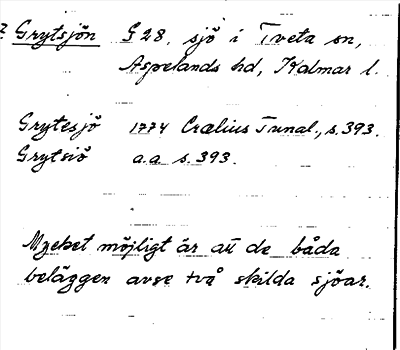 ? Grytsjön G 28. sjö i Tveta sn,
Aspelands hd, Kalmar l.
Grytesjö 1774 Crælius Tunal., s. 393.
Grytsiö a.a s. 393.
Mycket möjligt är att de båda
beläggen avse två skilda sjöar.